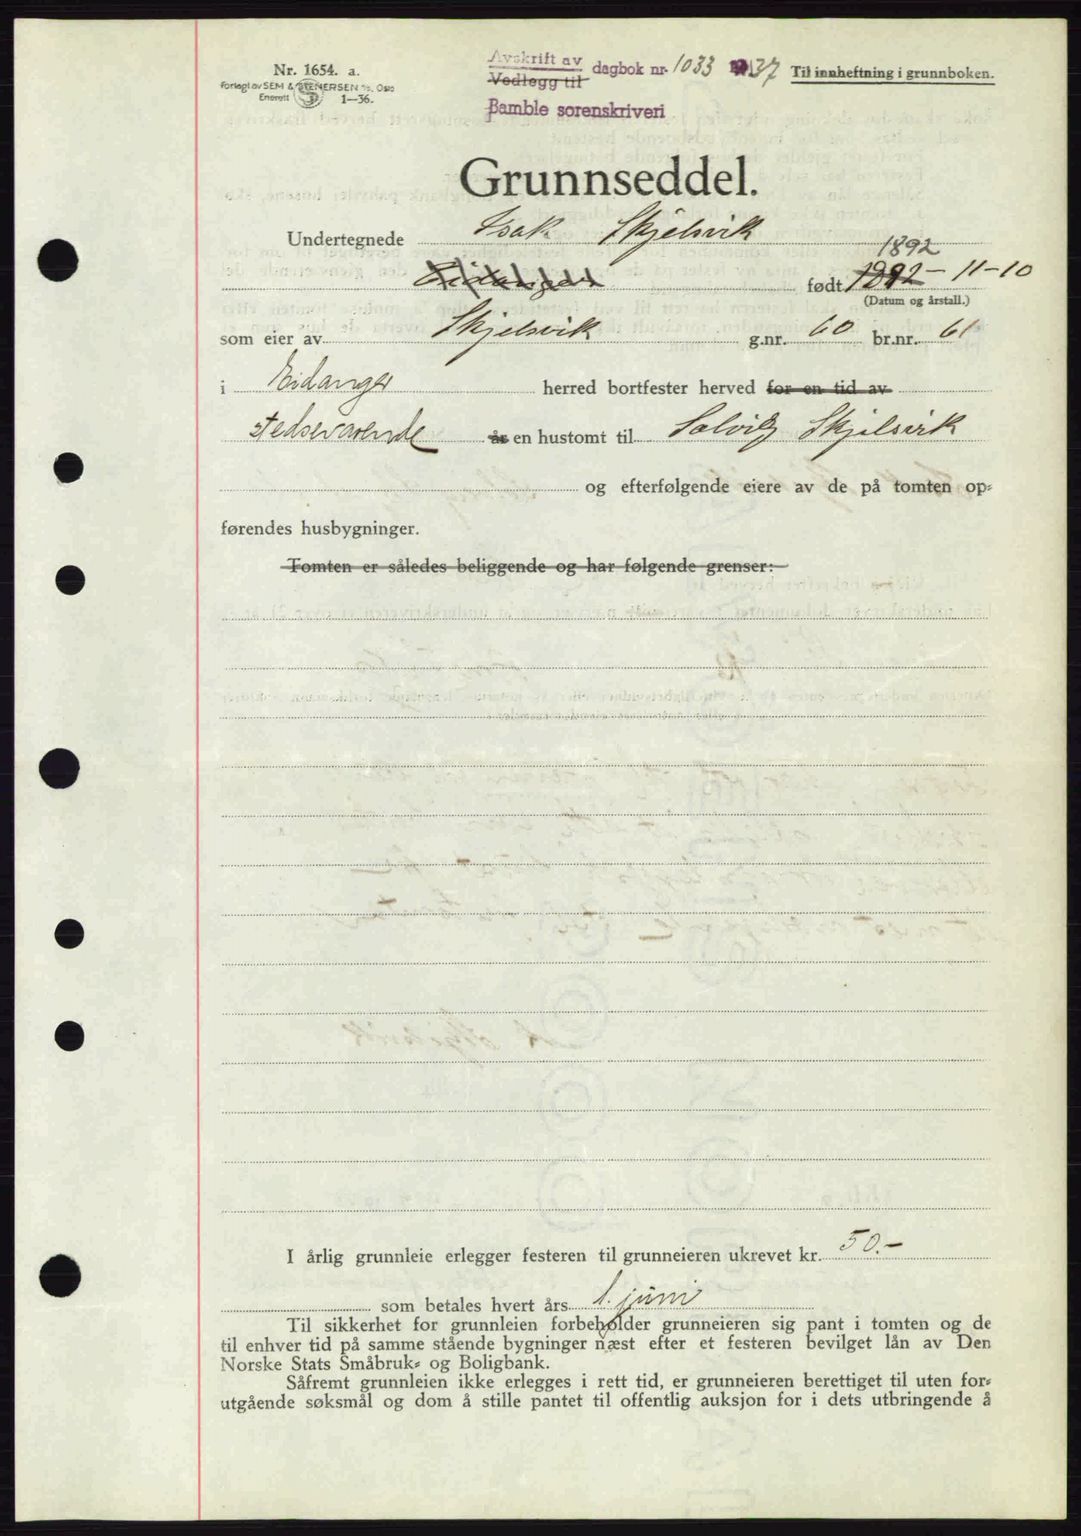 Nr. 1654. a.
Forlagt av SEM & STENERSEN A/S, Oslo
Enerett 1—36.
Avskrift av
Vedlegg til dagbok nr. 1033 1937
Bamble sorenskriveri
Til innheftning i grunnboken.
Grunnseddel.
Undertegnede Isak Skjelsvik
1892
Eidanger født 1892-11-10
(Datum og årstall.)
som eier av Skjelsvik g.nr. 60 br.nr. 61
i Eidanger herred bortfester herved for en tid av
stedsevarende år en hustomt til Solvig Skjelsvik
og efterfølgende eiere av de på tomten op-
førendes husbygninger.
Tomten er således beliggende og har følgende grenser:
I årlig grunnleie erlegger festeren til grunneieren ukrevet kr. 50.-
som betales hvert års 1. juni
Til sikkerhet for grunnleien forbeholder grunneieren sig pant i tomten og de
til enhver tid på samme stående bygninger næst efter et festeren bevilget lån av Den
Norske Stats Småbruk- og Boligbank.
Såfremt grunnleien ikke erlegges i rett tid, er grunneieren berettiget til uten for-
utgående søksmål og dom å stille pantet til offentlig auksjon for i dets utbringende å